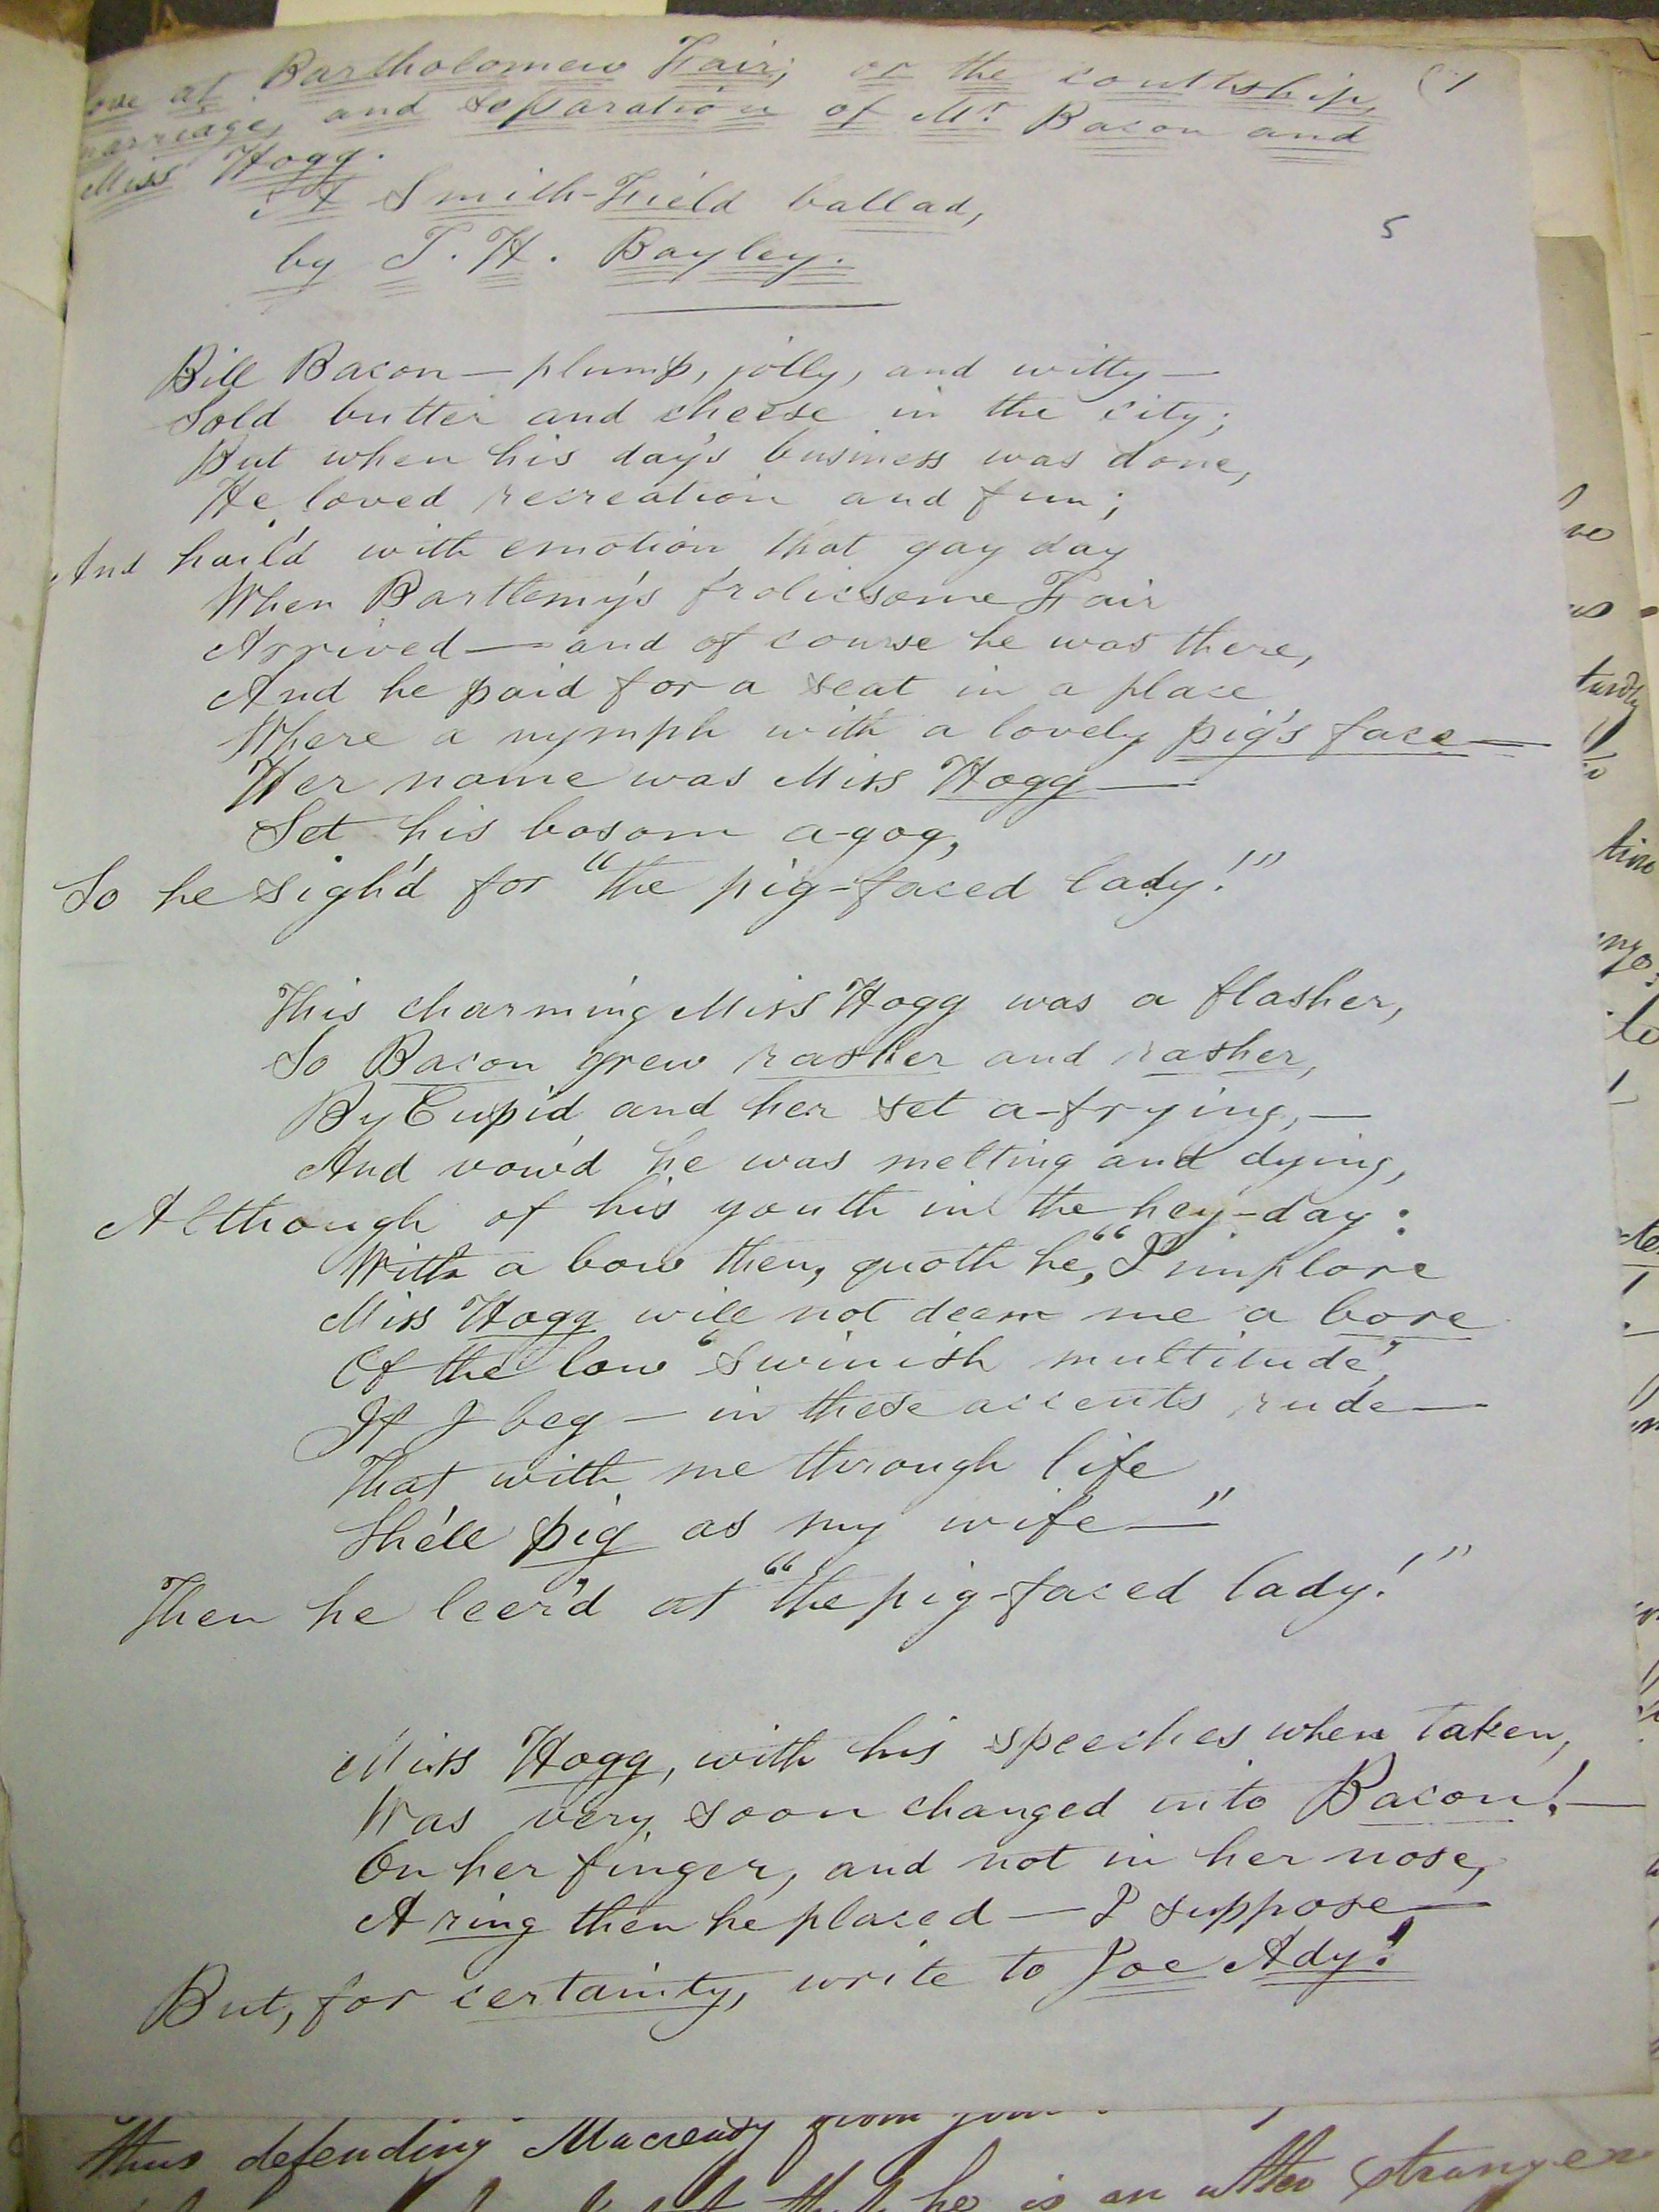 ove at Bartholomew Fair; or the courtship, (1
marriage, and separation of Mr Bacon and
Miss Hogg.
A Smith-Field ballad,
5
by T. H. Bayley.
Bill Bacon — plump, jolly, and witty —
Sold butter and cheese in the city;
But when his day's business was done,
He loved recreation and fun;
And hail'd with emotion that gay day
When Bartlemy's frolicsome Fair
Arrived — and of course he was there,
And he paid for a seat in a place
Where a nymph with a lovely pig's face —
Her name was Miss Hogg —
Set his bosom a-gog,
So he sigh'd for "the pig-faced lady!"
This charming Miss Hogg was a flasher,
So Bacon grew rasher and rasher,
By Cupid and her set a-frying, —
And vow'd he was melting and dying,
Although of his youth in the hey-day:
With a bow then, quoth he, "I implore
Miss Hogg will not deem me a bore
Of the low 'swinish multitude',
If I beg — in these accents rude —
That with me through life
She'll pig as my wife —"
Then he leer'd at "the pig-faced lady!"
Miss Hogg, with his speeches when taken,
Was very soon changed into Bacon! —
On her finger, and not in her nose,
A ring then he placed — I suppose —
But, for certainty, write to Joe Ady!
thus defending Macready from
he is an utter stranger